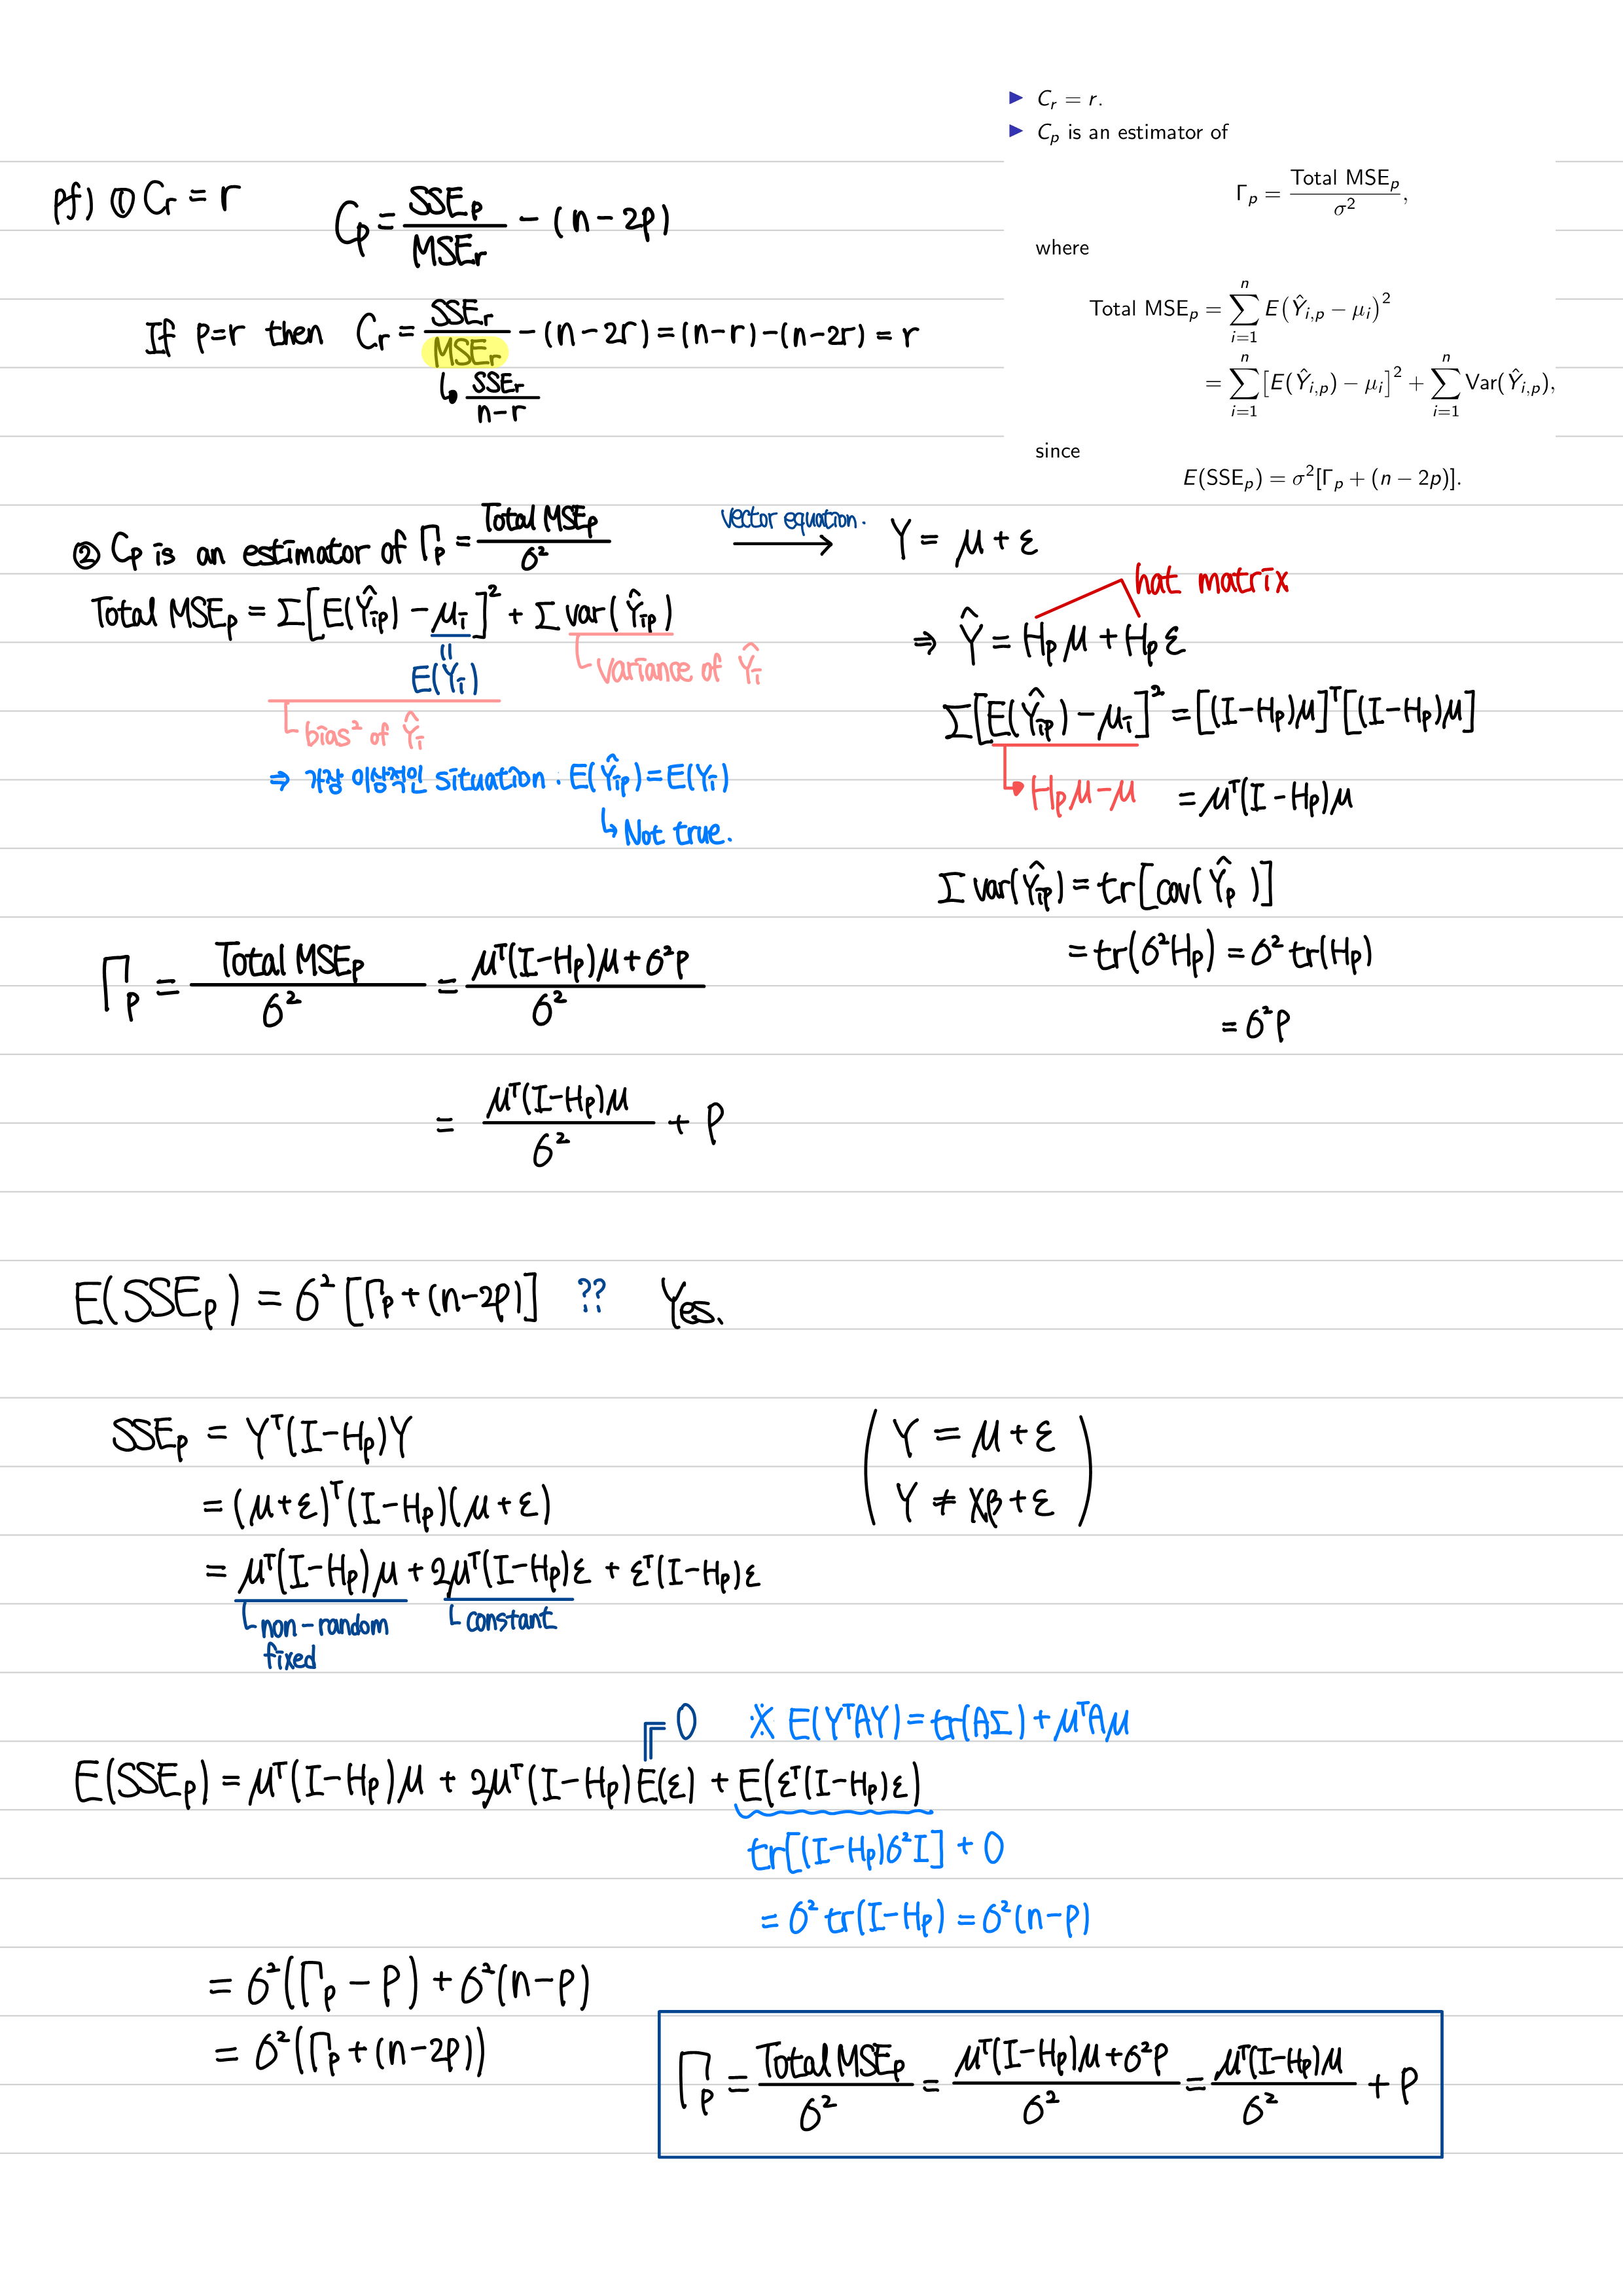 ▶ C_r = r.
▶ C_p is an estimator of
Γ_p = Total MSE_p / σ²,
where
Total MSE_p = Σ_{i=1}^{n} E(Ŷ_{i,p} − μ_i)²
= Σ_{i=1}^{n} [E(Ŷ_{i,p}) − μ_i]² + Σ_{i=1}^{n} Var(Ŷ_{i,p}),
since
E(SSE_p) = σ²[Γ_p + (n − 2p)].
pf) ① C_r = r
C_p = SSE_p / MSE_r − (n − 2p)
If p=r then C_r = SSE_r / MSE_r − (n − 2r) = (n−r) − (n−2r) = r
↳ SSE_r / n−r
② C_p is an estimator of Γ_p = Total MSE_p / σ²
Total MSE_p = Σ[E(Ŷ_ip) − μ_i]² + Σ var(Ŷ_ip)
= E(Y_i)
variance of Ŷ_i
bias² of Ŷ_i
⇒ 가장 이상적인 situation. E(Ŷ_ip) = E(Y_i)
↳ Not true.
vector equation.
→ Y = μ + ε
hat matrix
⇒ Ŷ = H_p μ + H_p ε
Σ[E(Ŷ_ip) − μ_i]² = [(I−H_p)μ]ᵀ[(I−H_p)μ]
↳ H_p μ − μ
= μᵀ(I−H_p)μ
Σ var(Ŷ_ip) = tr[cov(Ŷ_p)]
= tr(σ²H_p) = σ² tr(H_p)
= σ²p
Γ_p = Total MSE_p / σ² = μᵀ(I−H_p)μ + σ²p / σ²
= μᵀ(I−H_p)μ / σ² + p
E(SSE_p) = σ²[Γ_p + (n−2p)] ?? Yes.
SSE_p = Yᵀ(I−H_p)Y
= (μ+ε)ᵀ(I−H_p)(μ+ε)
= μᵀ(I−H_p)μ + 2μᵀ(I−H_p)ε + εᵀ(I−H_p)ε
non-random
fixed
constant
( Y = μ + ε
Y ≠ Xβ + ε )
0
※ E(YᵀAY) = tr(AΣ) + μᵀAμ
E(SSE_p) = μᵀ(I−H_p)μ + 2μᵀ(I−H_p)E(ε) + E(εᵀ(I−H_p)ε)
tr[(I−H_p)σ²I] + 0
= σ² tr(I−H_p) = σ²(n−p)
= σ²(Γ_p − p) + σ²(n−p)
= σ²(Γ_p + (n−2p))
Γ_p = Total MSE_p / σ² = μᵀ(I−H_p)μ + σ²p / σ² = μᵀ(I−H_p)μ / σ² + p